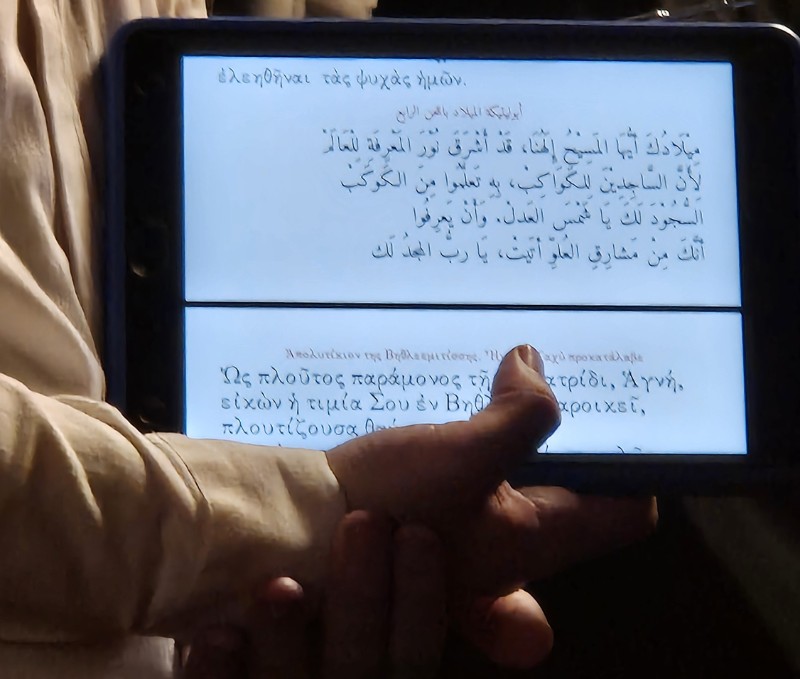 ἐλεηθῆναι τὰς ψυχὰς ἡμῶν.
أبوليتيكة الميلاد باللحن الرابع
مِيْلَادُكَ أَيُّهَا المَسِيْحُ إِلَهُنَا، قَدْ أَشْرَقَ نُوْرَ المَعْرِفَةِ لِلْعَالَمْ
لِأَنَّ السَّاجِدِيْنَ لِلْكَوَاكِبْ، بِهِ تَعَلَّمُوا مِنَ الكَوْكَبْ
السُّجُوْدَ لَكَ يَا شَمْسَ العَدلْ. وَأَنْ يَعرِفُوا
أَنَّكَ مِنْ مَشَارِقِ العُلوِّ أَتَيْتْ، يَا ربُّ المجدُ لَك
Ἀπολυτίκιον της Βηθλεεμιτίσσης. αχύ προκατάλαβε
Ὡς πλοῦτος παράμονος τῇ ατρίδι, Ἁγνή,
εἰκὼν ἡ τιμία Σου ἐν Βηθλ αροικεῖ,
πλουτίζουσα